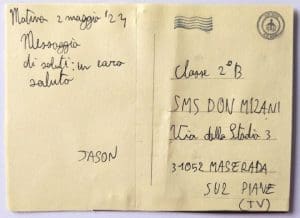 Matina 2 maggio '24
Messaggio
di saluti: un caro
saluto
JASON
Classe 2°B
SMS DON MIZANI
Via dello Stadio 3
31052 MASERADA
SUL PIAVE
(TV)